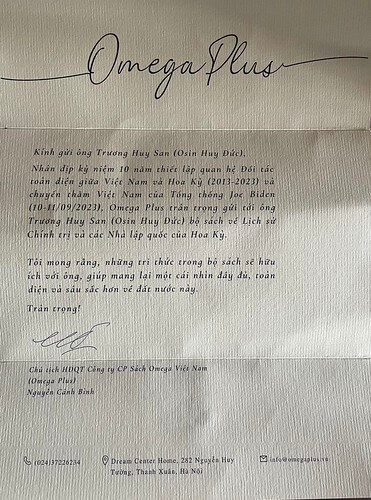 Omega Plus
Kính gửi ông Trương Huy San (Osin Huy Đức),
Nhân dịp kỷ niệm 10 năm thiết lập quan hệ Đối tác
toàn diện giữa Việt Nam và Hoa Kỳ (2013-2023) và
chuyến thăm Việt Nam của Tổng thống Joe Biden
(10-11/09/2023), Omega Plus trân trọng gửi tới ông
Trương Huy San (Osin Huy Đức) bộ sách về Lịch sử
Chính trị và các Nhà lập quốc của Hoa Kỳ.
Tôi mong rằng, những tri thức trong bộ sách sẽ hữu
ích với ông, giúp mang lại một cái nhìn đầy đủ, toàn
diện và sâu sắc hơn về đất nước này.
Trân trọng!
Chủ tịch HĐQT Công ty CP Sách Omega Việt Nam
(Omega Plus)
Nguyễn Cảnh Bình
(024)37226234
Dream Center Home, 282 Nguyễn Huy
Tưởng, Thanh Xuân, Hà Nội
info@omegaplus.vn